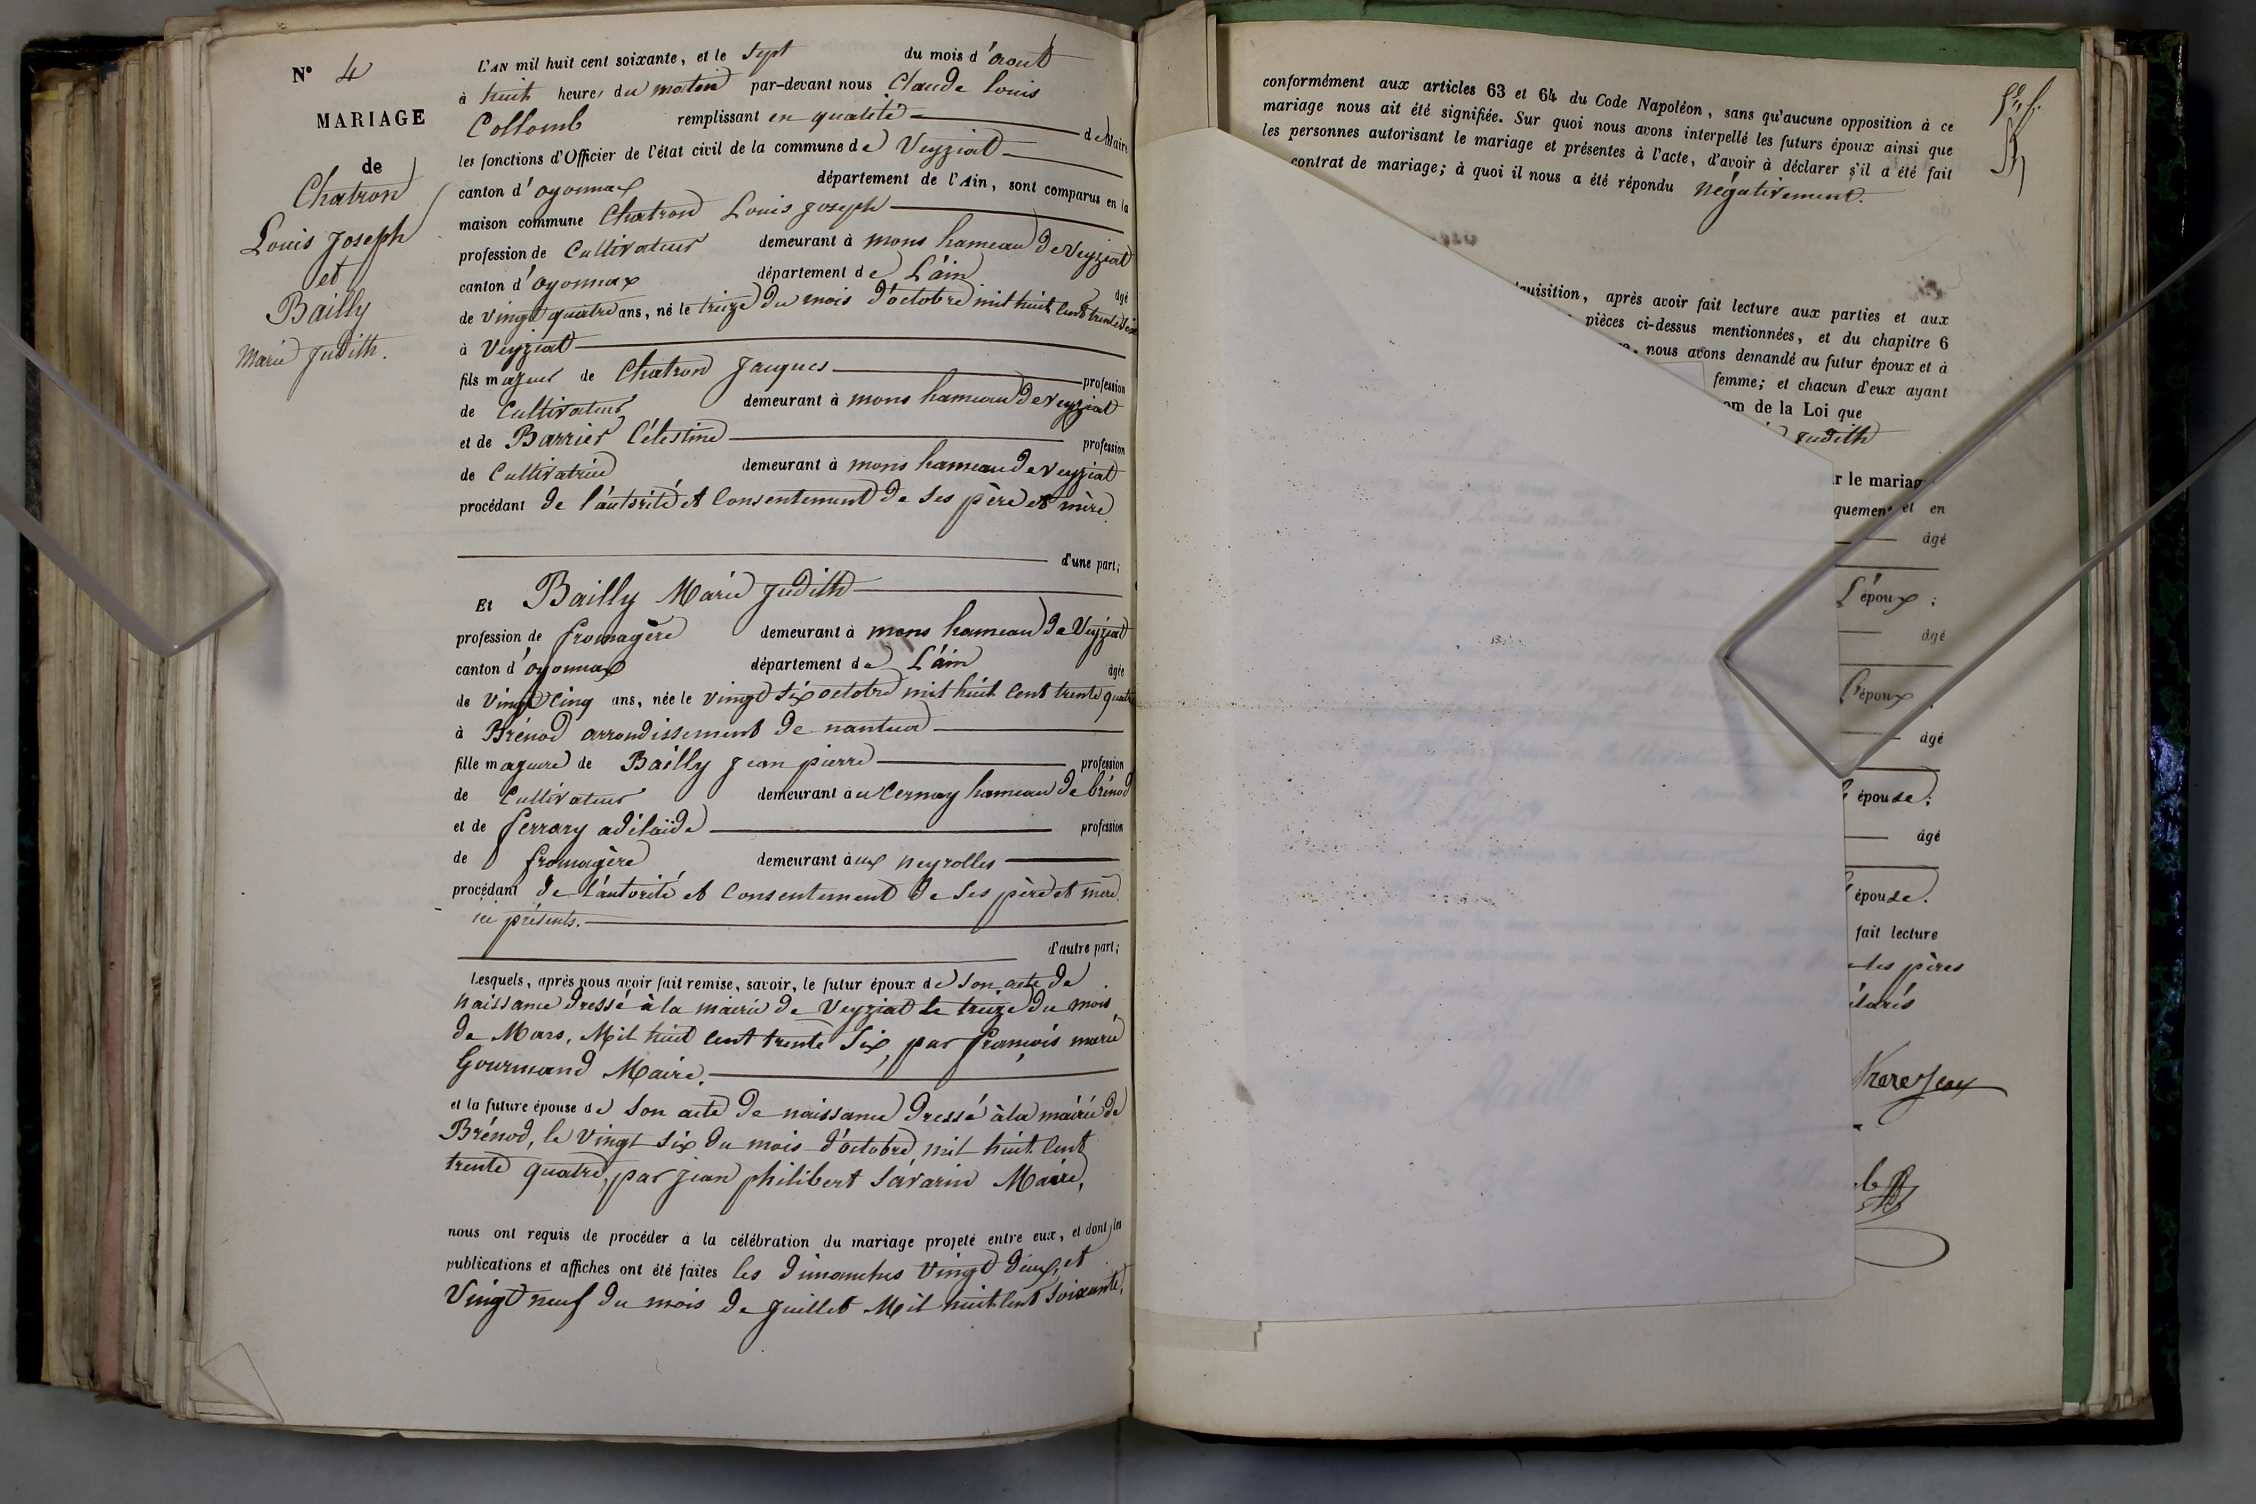 N° 4
MARIAGE
de
Chatron
Louis Joseph
et
Bailly
Marie Judith.
L'AN mil huit cent soixante, et le sept du mois d'aout
à huit heures du matin par-devant nous Claude Louis
Collomb remplissant en qualité de Maire
les fonctions d'Officier de l'état civil de la commune de Veyziat
canton d'oyonnax département de l'Ain, sont comparus en la
maison commune Chatron Louis Joseph
profession de Cultivateur demeurant à mons hameau de Veyziat
canton d'oyonnax département de L'ain âgé
de vingt quatre ans, né le treize du mois d'octobre mil huit cent trente six
à Veyziat
fils majeur de Chatron Jacques profession
de Cultivateur demeurant à mons hameau de Veyziat
et de Barrier Célestine profession
de Cultivatrice demeurant à mons hameau de Veyziat
procédant de l'autorité et Consentement de ses père et mère
d'une part;
Et Bailly Marie Judith
profession de fromagère demeurant à mons hameau de Veyziat
canton d'oyonnax département de L'ain âgée
de Vingt Cinq ans, née le vingt six octobre mil huit cent trente quatre
à Brénod arrondissement de nantua
fille majeure de Bailly Jean pierre profession
de Cultivateur demeurant au Cernay hameau de brénod
et de ferrary adélaïde profession
de fromagère demeurant aux neyrolles
procédant de l'autorité et Consentement de ses père et mère
ici présents.
d'autre part;
Lesquels, après nous avoir fait remise, savoir, le futur époux de son acte de
naissance dressé à la mairie de Veyziat le treize du mois
de Mars, Mil huit cent trente six, par françois marie
Gourmand Maire.
et la future épouse de son acte de naissance dressé à la mairie de
Brénod, le vingt six du mois d'octobre mil huit cent
trente quatre, par jean philibert Savarin Maire,
nous ont requis de procéder à la célébration du mariage projeté entre eux, et dont les
publications et affiches ont été faites les dimanches vingt deux, et
Vingt neuf du mois de Juillet Mil huit cent soixante,
conformément aux articles 63 et 64 du Code Napoléon, sans qu'aucune opposition à ce
mariage nous ait été signifiée. Sur quoi nous avons interpellé les futurs époux ainsi que
les personnes autorisant le mariage et présentes à l'acte, d'avoir à déclarer s'il a été fait
contrat de mariage; à quoi il nous a été répondu négativement.
quisition, après avoir fait lecture aux parties et aux
pièces ci-dessus mentionnées, et du chapitre 6
nous avons demandé au futur époux et à
femme; et chacun d'eux ayant
om de la Loi que
Judith
r le mariage
quement et en
âgé
L'époux;
âgé
L'époux
âgé
épouse;
âgé
épouse.
fait lecture
les pères